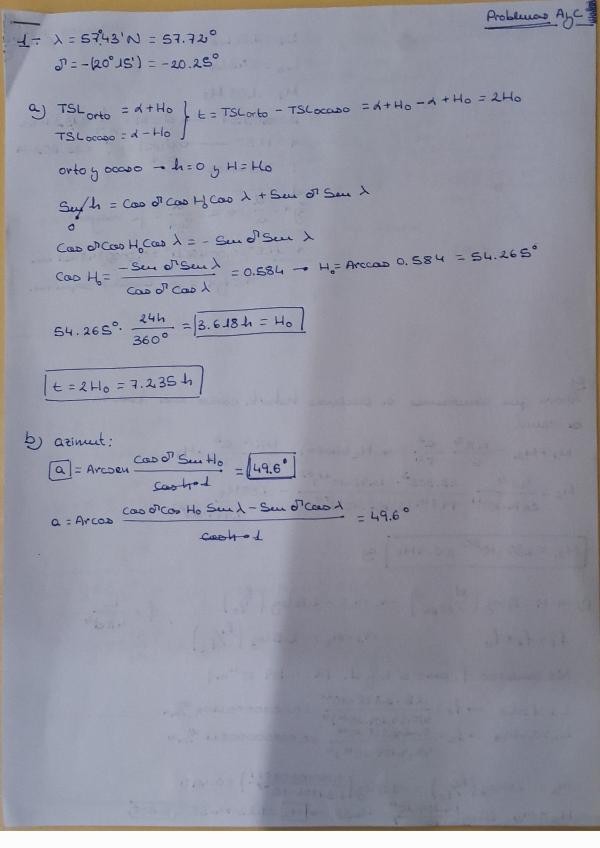 Problemas AyC
1÷ λ = 57º43' N = 57.72º
δ = -(20º15') = -20.25º
a) TSL orto = α + H₀ } t = TSL orto - TSL ocaso = α + H₀ - α + H₀ = 2H₀
TSL ocaso = α - H₀
orto y ocaso → h = 0 y H = H₀
Sen h = Cos δ Cos H₀ Cos λ + Sen δ Sen λ
0
Cos δ Cos H₀ Cos λ = - Sen δ Sen λ
Cos H₀ = -Sen δ Sen λ / Cos δ Cos λ = 0.584 → H₀ = Arccos 0.584 = 54.265º
54.265º · 24h / 360º = 3.618 h = H₀
t = 2H₀ = 7.235 h
b) azimut:
a = Arcsen Cos δ Sin H₀ / Cos h = 1 = 49.6º
a = Arcos Cos δ Cos H₀ Sen λ - Sen δ Cos λ / Cos h = 1 = 49.6º